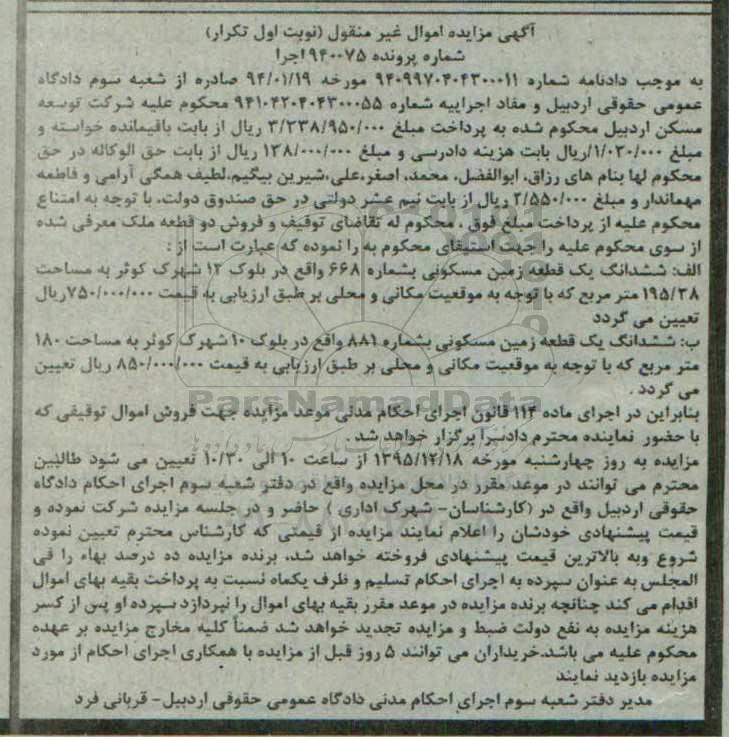 آگهی مزایده اموال غیر منقول (نوبت اول تکرار)
شماره پرونده ۹۴۰۰۷۵ اجرا
به موجب دادنامه شماره ۹۴۰۹۹۷۰۴۰۴۳۰۰۰۱۱ مورخه ۹۴/۰۱/۱۹ صادره از شعبه سوم دادگاه
عمومی حقوقی اردبیل و مفاد اجراییه شماره ۹۴۱۰۴۲۰۴۰۴۳۰۰۰۵۵ محکوم علیه شرکت توسعه
مسکن اردبیل محکوم شده به پرداخت مبلغ ۳/۲۳۸/۹۵۰/۰۰۰ ریال از بابت باقیمانده خواسته و
مبلغ ۱/۰۳۰/۰۰۰/ریال بابت هزینه دادرسی و مبلغ ۱۳۸/۰۰۰/۰۰۰ ریال از بابت حق الوکاله در حق
محکوم لها بنام های رزاق، ابوالفضل، محمد، اصغر،علی،شیرین بیگیم،لطیف همگی آرامی و فاطمه
مهماندار و مبلغ ۲/۵۵۰/۰۰۰ ریال از بابت نیم عشر دولتی در حق صندوق دولت، با توجه به امتناع
محکوم علیه از پرداخت مبلغ فوق ، محکوم له تقاضای توقیف و فروش دو قطعه ملک معرفی شده
از سوی محکوم علیه را جهت استیفای محکوم به را نموده که عبارت است از :
الف: ششدانگ یک قطعه زمین مسکونی بشماره ۶۶۸ واقع در بلوک ۱۲ شهرک کوثر به مساحت
۱۹۵/۳۸ متر مربع که با توجه به موقعیت مکانی و محلی بر طبق ارزیابی به قیمت ۷۵۰/۰۰۰/۰۰۰ریال
تعیین می گردد
ب: ششدانگ یک قطعه زمین مسکونی بشماره ۸۸۱ واقع در بلوک ۱۰ شهرک کوثر به مساحت ۱۸۰
متر مربع که با توجه به موقعیت مکانی و محلی بر طبق ارزیابی به قیمت ۸۵۰/۰۰۰/۰۰۰ ریال تعیین
می گردد .
ParsNamadData
بنابراین در اجرای ماده ۱۱۴ قانون اجرای احکام مدنی موعد مزایده جهت فروش اموال توقیفی که
با حضور نماینده محترم دادسرا برگزار خواهد شد .
مزایده به روز چهارشنبه مورخه ۱۳۹۵/۱۲/۱۸ از ساعت ۱۰ الی ۱۰/۳۰ تعیین می شود طالبین
محترم می توانند در موعد مقرر در محل مزایده واقع در دفتر شعبه سوم اجرای احکام دادگاه
حقوقی اردبیل واقع در (کارشناسان- شهرک اداری ) حاضر و در جلسه مزایده شرکت نموده و
قیمت پیشنهادی خودشان را اعلام نمایند مزایده از قیمتی که کارشناس محترم تعیین نموده
شروع وبه بالاترین قیمت پیشنهادی فروخته خواهد شد، برنده مزایده ده درصد بهاء را فی
المجلس به عنوان سپرده به اجرای احکام تسلیم و ظرف یکماه نسبت به پرداخت بقیه بهای اموال
اقدام می کند چنانچه برنده مزایده در موعد مقرر بقیه بهای اموال را نپردازد سپرده او پس از کسر
هزینه مزایده به نفع دولت ضبط و مزایده تجدید خواهد شد ضمناً کلیه مخارج مزایده بر عهده
محکوم علیه می باشد.خریداران می توانند ۵ روز قبل از مزایده با همکاری اجرای احکام از مورد
مزایده بازدید نمایند
مدیر دفتر شعبه سوم اجرای احکام مدنی دادگاه عمومی حقوقی اردبیل- قربانی فرد